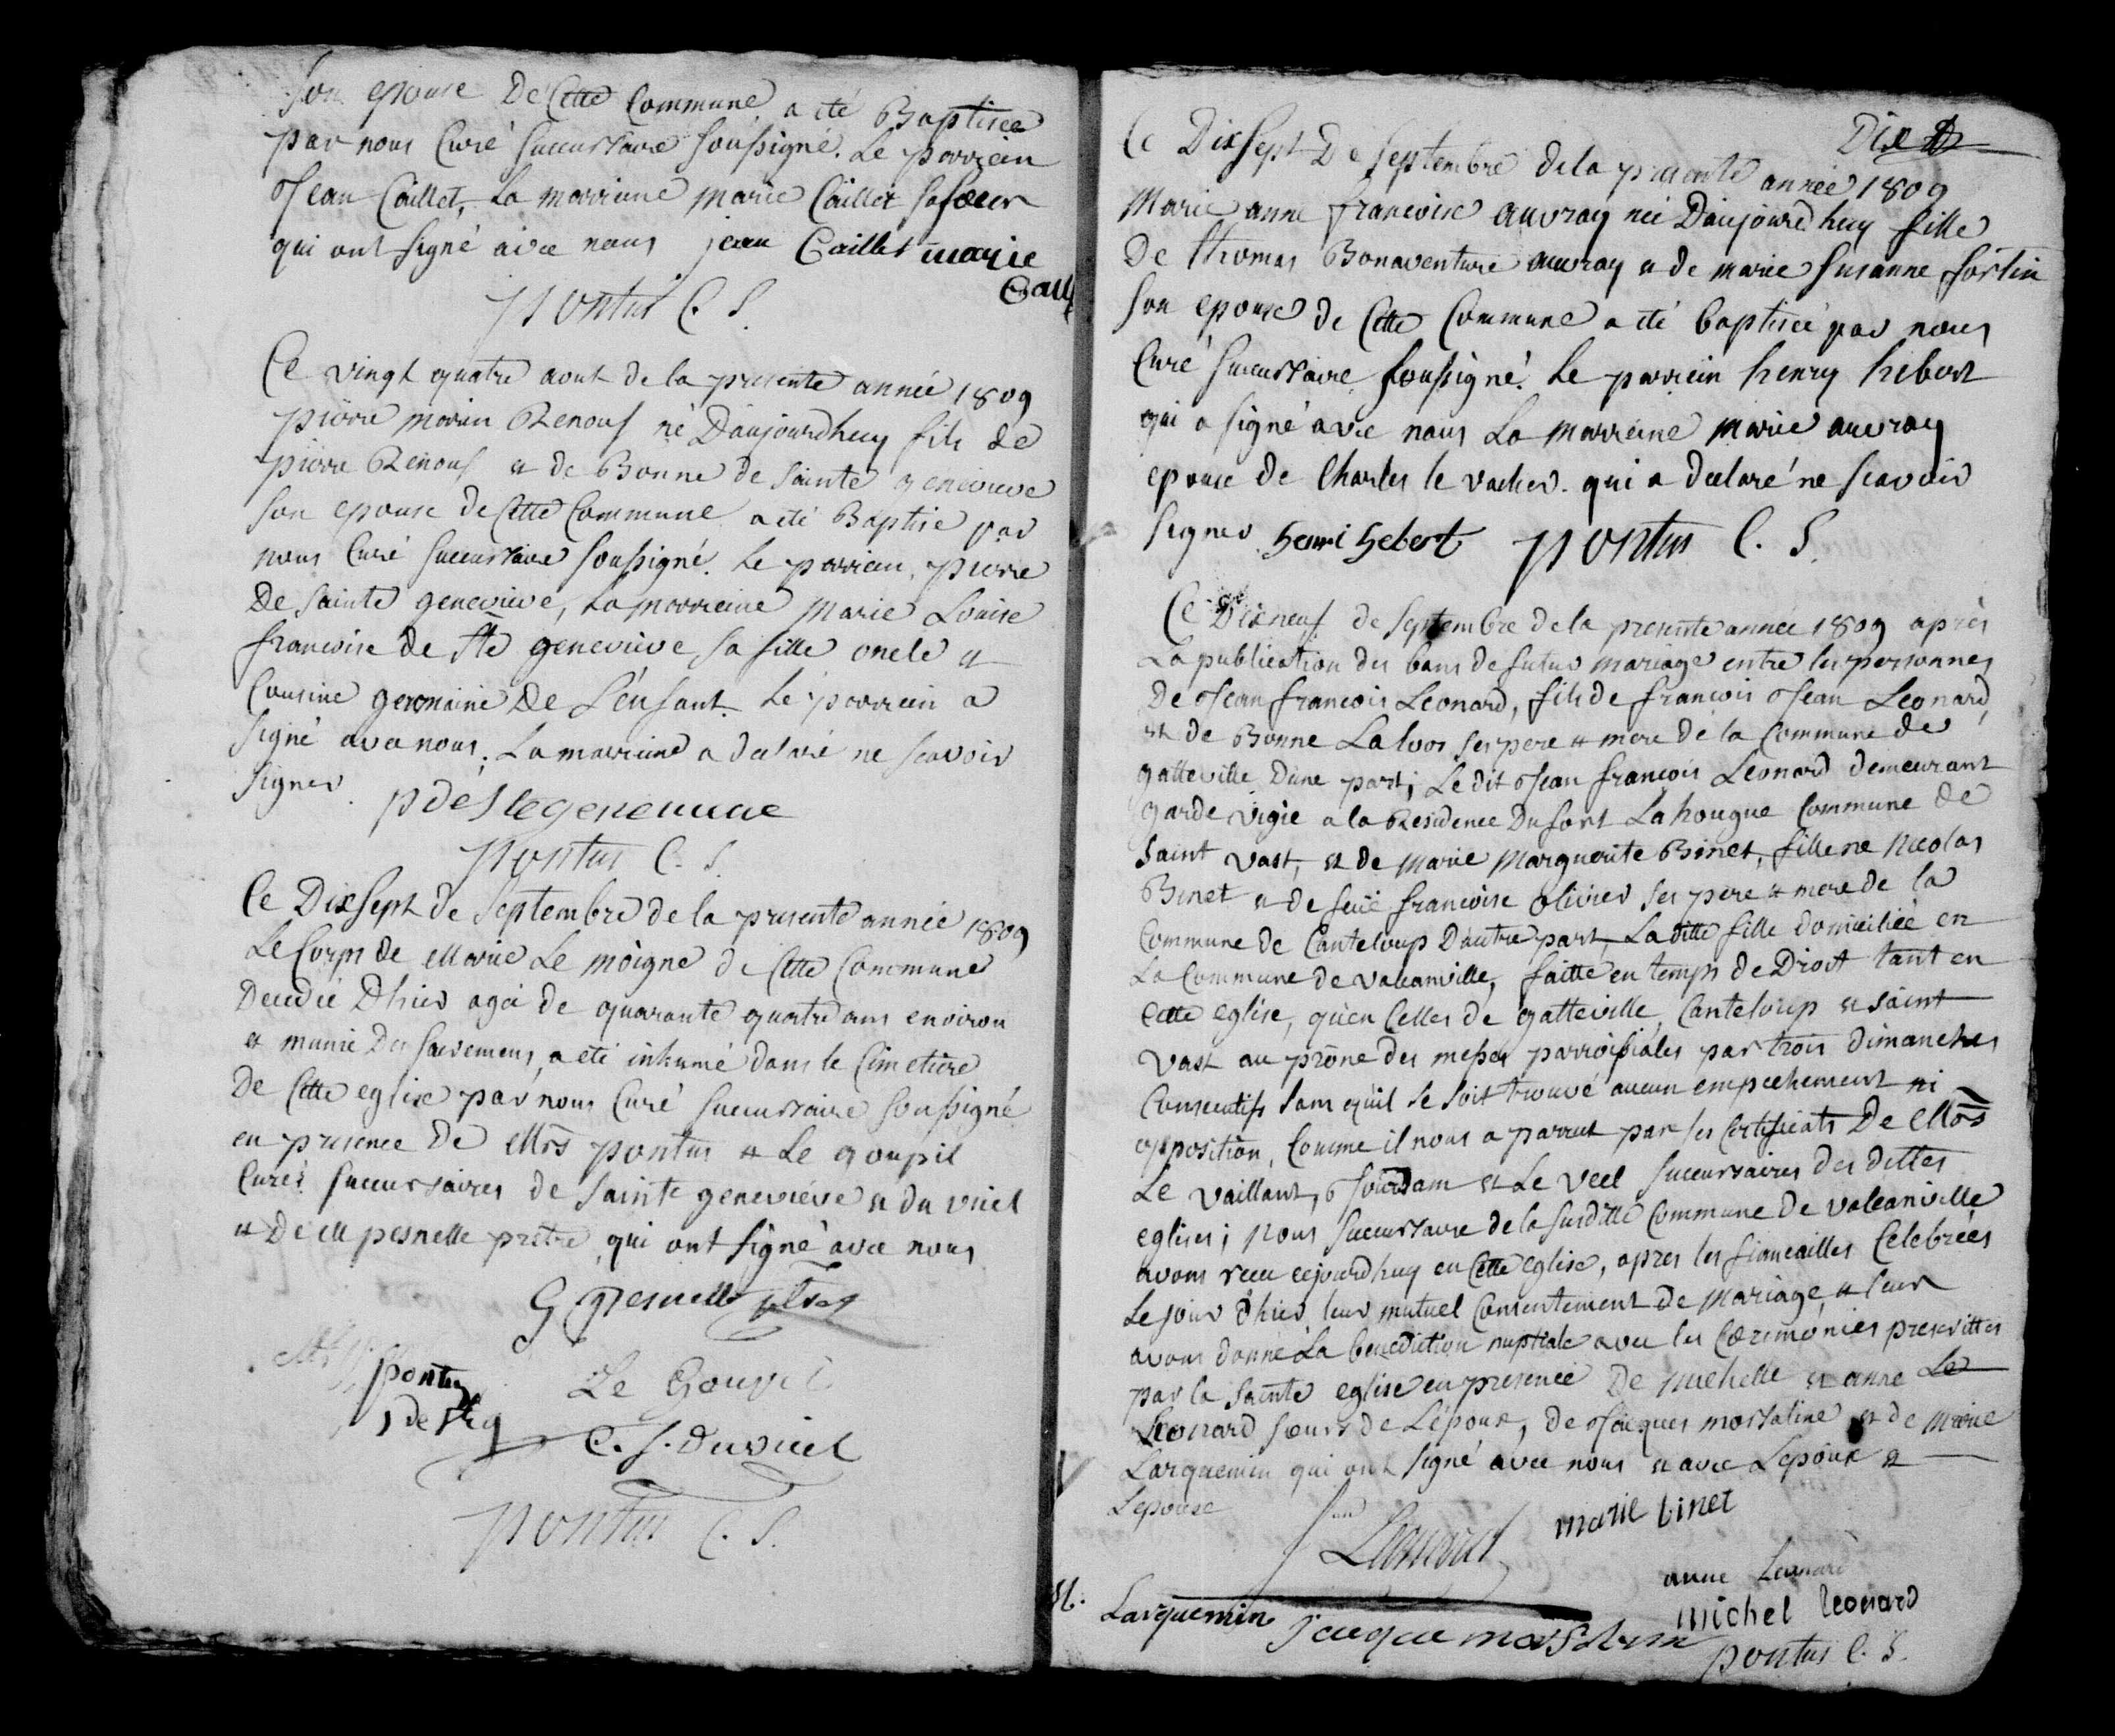 Son epouse De Cette Commune a été Baptisée
par nous Curé Succursaire soussigné. Le parrein
Jean Caillet, La marreine Marie Caillet sa soeur
qui ont signé avec nous jean Caillet marie
Caill
pontus C. S.
Ce vingt quatre aout de la presente année 1809
pierre marin Renouf né Daujourdhuy fils de
pierre Renouf et de Bonne de Sainte genevieve
son epouse de Cette Commune a été Baptisé par
nous Curé Succursaire soussigné. Le parrein, pierre
De Sainte genevieve, La marreine Marie Louise
francoise de Ste genevieve sa fille oncle et
Cousine germaine De L'enfant. Le parrein a
signé avec nous; La marreine a declaré ne scavoir
signer. p de Ste genevieve
pontus C. S.
Ce Dix Sept de Septembre de la presente année 1809
Le Corps de Marie Le moigne de Cette Commune
Decedée Dhier agée de quarante quatre ans environ
et munie Des sacremens, a eté inhumé dans le Cimetiere
De Cette eglise par nous Curé succursaire soussigné
en presence De Mrs pontus et Le goupil
Curés Succursaires de Sainte genevieve et du vicel
et De M pesnelle pretre qui ont signé avec nous
G pesnelle ptre
pontus Le Goupil
de Steg
C. S. du vicel
pontus C. S.
Dix
Ce Dix Sept De Septembre de la presente année 1809
Marie anne francoise auvray née Daujourdhuy fille
De thomas Bonaventure auvray et de marie Susanne fortin
son epouse de Cette Commune a été baptisée par nous
Curé Succursaire soussigné. Le parrein henry hebert
qui a signé avec nous La marreine marie auvray
epouse de Charles le vacher. qui a declaré ne scavoir
signer henri hebert pontus C. S.
Ce Dix neuf de Septembre de la presente année 1809 après
La publication des bans de futur mariage entre les personnes
De Jean francois Leonard, fils de francois Jean Leonard,
et de Bonne Laloos ses pere et mere de la Commune de
gatteville D'une part; Le dit Jean francois Leonard demeurant
garde vigie a la Residence Du fort La hougue Commune de
Saint vast, et de Marie Marguerite Binet, fille ne Nicolas
Binet et de feüe francoise olivier ses pere et mere de la
Commune de Canteloup D'autre part, La ditte fille domiciliée en
La Commune de valcanville, faitte en temps de Droit tant en
Cette eglise, qu'en Celles de gatteville, Canteloup et saint
vast au prône des messes parroissiales par trois dimanches
Consecutifs sans qu'il se soit trouvé aucun empechement ni
opposition, Comme il nous a parrut par les Certificats De Mrs
Le vaillant, Jourdam et Le veel Succursaires des dittes
eglises; Nous Succursaire de la susditte Commune de valcanville
avons recu cejourdhuy en Cette eglise, apres les fiancailles Celebrées
Le jour d'hier, leur mutuel Consentement de mariage, et leur
avons donné La benediction nuptiale avec les Cæremonies prescrittes
par la Sainte eglise en presence De Michelle et anne Le
Leonard soeurs de L'époux, de Jacques morsaline et de Marie
Larquemin qui ont signé avec nous et avec L'epoux et
L'epouse
jean Leonard marie binet
anne Leonard
M. Larquemin jacque morsaline michel leonard
pontus C. S.